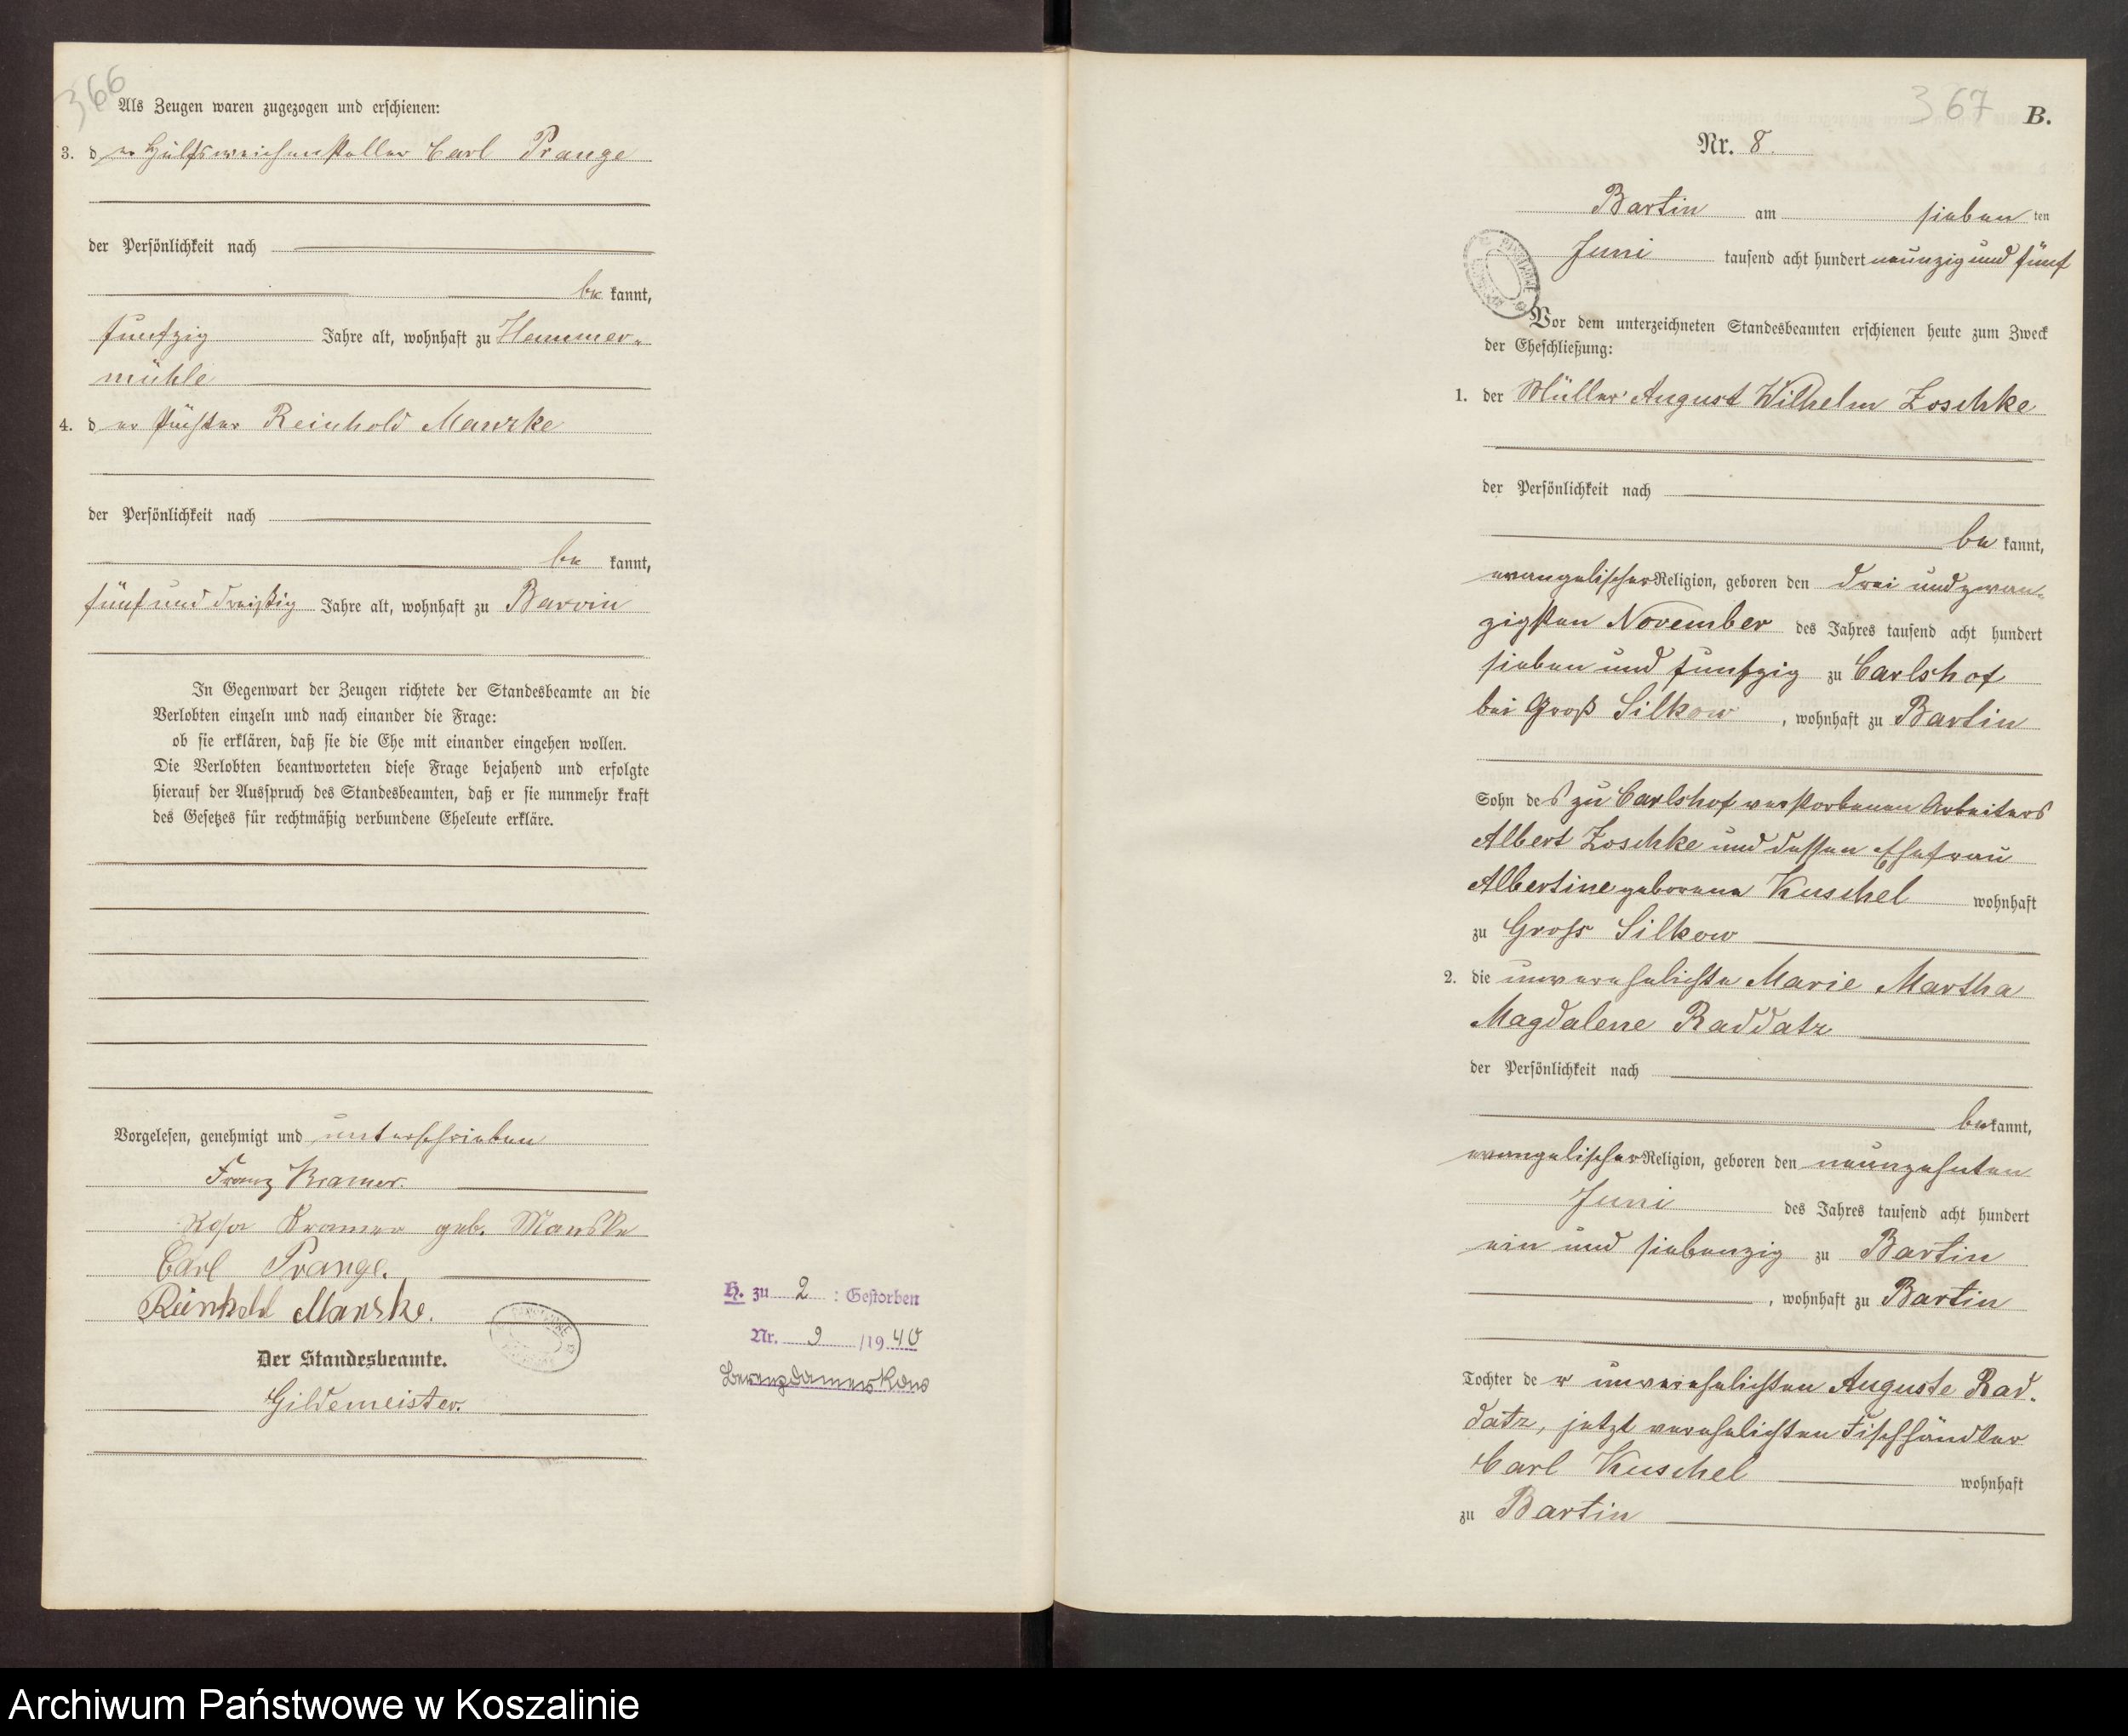 366
Als Zeugen waren zugezogen und erschienen:
3. der Hülfsweichensteller Carl Prange
der Persönlichkeit nach
be kannt,
fünfzig Jahre alt, wohnhaft zu Hammer-
mühle
4. der Küster Reinhold Manzke
der Persönlichkeit nach
be kannt,
fünf und dreißig Jahre alt, wohnhaft zu Barvin
In Gegenwart der Zeugen richtete der Standesbeamte an die
Verlobten einzeln und nach einander die Frage:
ob sie erklären, daß sie die Ehe mit einander eingehen wollen.
Die Verlobten beantworteten diese Frage bejahend und erfolgte
hierauf der Ausspruch des Standesbeamten, daß er sie nunmehr kraft
des Gesetzes für rechtmäßig verbundene Eheleute erkläre.
Vorgelesen, genehmigt und unterschrieben
Franz Kramer.
Kramer geb. Manske
Carl Prange.
Reinhold Manske.
Der Standesbeamte.
Gildemeister.
H. zu 2 : Gestorben
Nr. 9 /19 40
367
B.
Nr. 8.
Bartin am sieben ten
Juni tausend acht hundert neunzig und fünf
Vor dem unterzeichneten Standesbeamten erschienen heute zum Zweck
der Eheschließung:
1. der Müller August Wilhelm Zoschke
der Persönlichkeit nach
be kannt,
evangelischer Religion, geboren den drei und zwan-
zigsten November des Jahres tausend acht hundert
sieben und fünfzig zu Carlshof
bei Groß Silkow, wohnhaft zu Bartin
Sohn des zu Carlshof verstorbenen Arbeiters
Albert Zoschke und dessen Ehefrau
Albertine geborene Kuschel wohnhaft
zu Gross Silkow
2. die unverehelichte Marie Martha
Magdalene Raddatz
der Persönlichkeit nach
be kannt,
evangelischer Religion, geboren den neunzehnten
Juni des Jahres tausend acht hundert
ein und siebenzig zu Bartin
, wohnhaft zu Bartin
Tochter der unverehelichten Auguste Rad-
datz, jetzt verehelichten Fischhändler
Carl Kuschel wohnhaft
zu Bartin
Archiwum Państwowe w Koszalinie